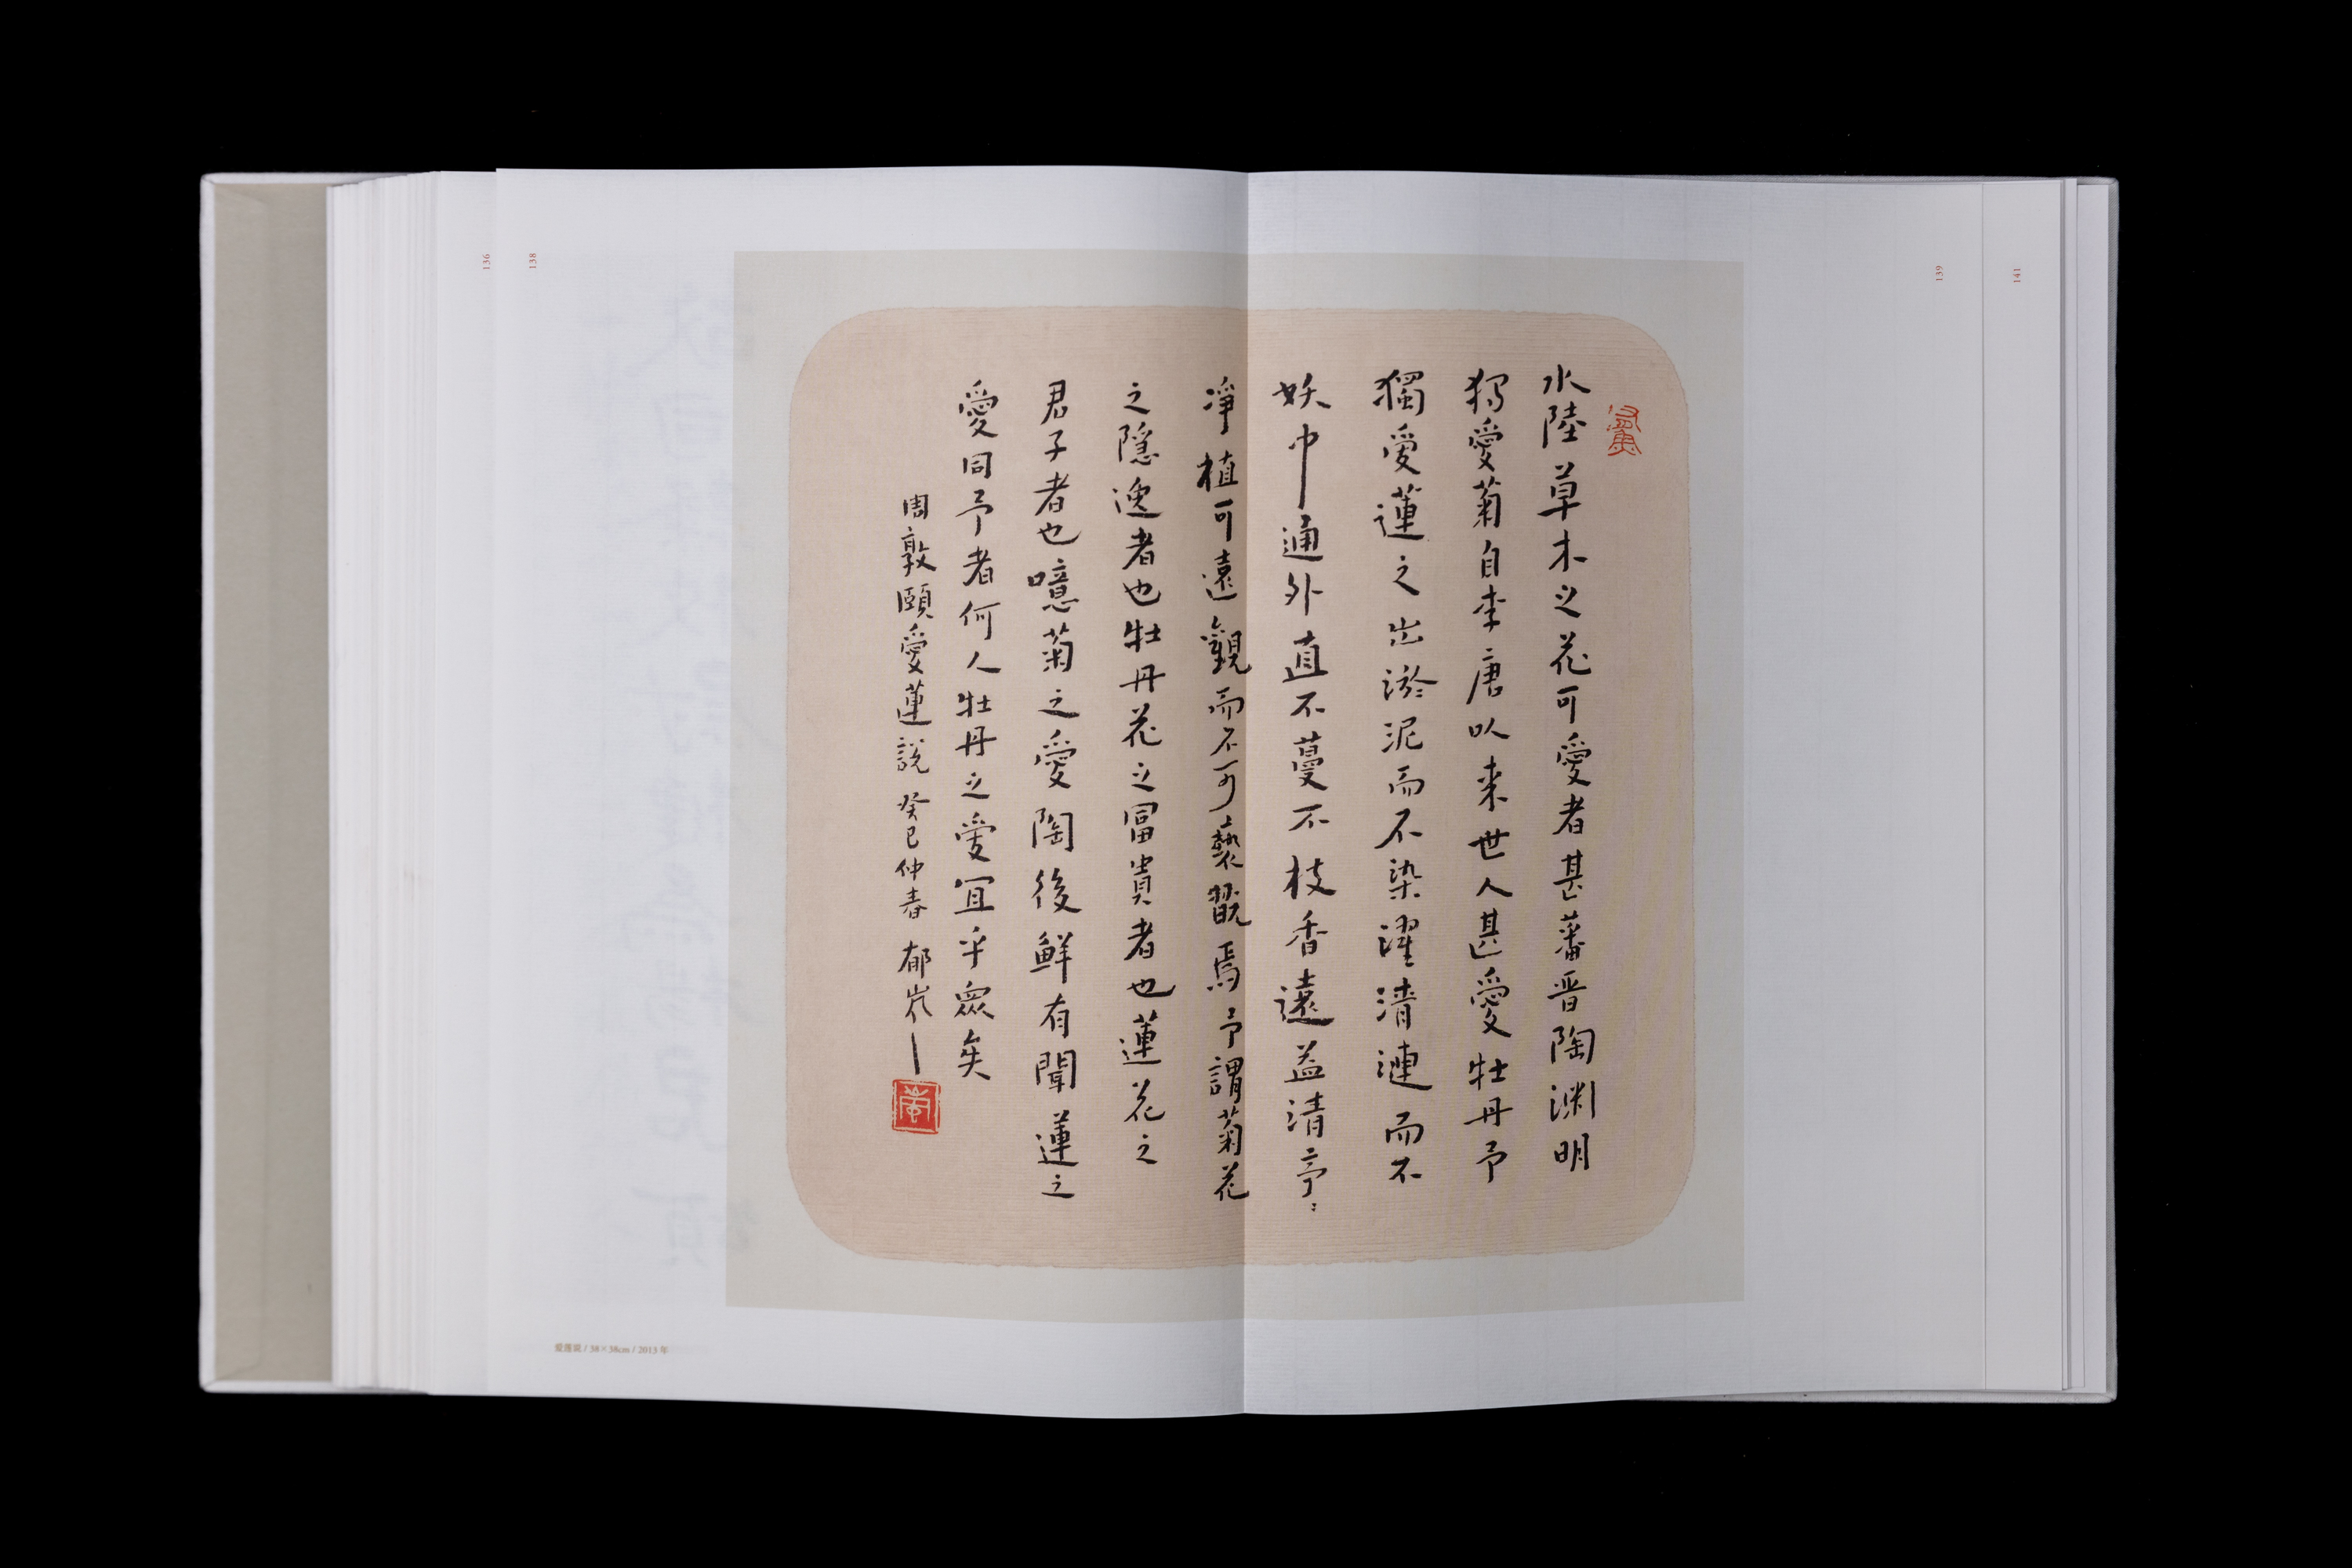 水陸草木之花可愛者甚蕃晋陶渊明
獨愛菊自李唐以来世人甚愛牡丹予
獨愛蓮之出淤泥而不染濯清漣而不
妖中通外直不蔓不枝香遠益清亭:
淨植可遠觀而不可褻翫焉予謂菊花
之隱逸者也牡丹花之冨貴者也蓮花之
君子者也噫菊之愛陶後鮮有聞蓮之
愛同予者何人牡丹之愛冝乎衆矣
周敦頤愛蓮説 癸巳仲春 郁嵐
136
138
139
141
愛蓮說 / 38×38cm / 2013 年